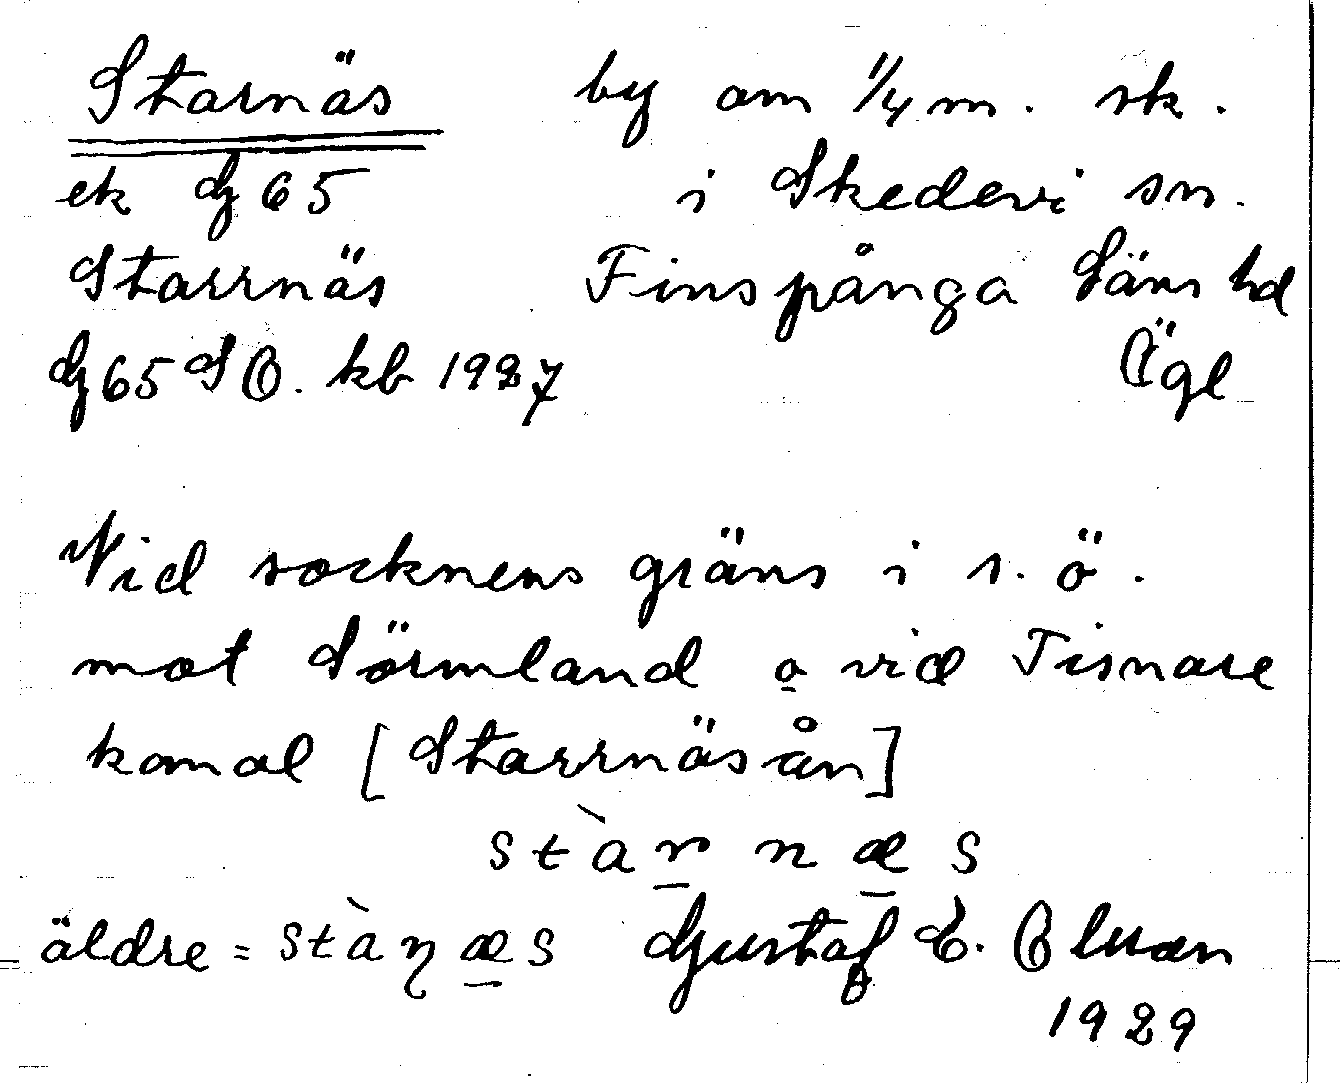 Starnäs by om 1/4 m. sk.
ek dz 65 i Skedevi sn.
Starrnäs Finspånga Läns hd
dz 65 SO. kb 1927 Ögl
Vid socknens gräns i s. ö.
mot Sörmland o vid Tisnare
kanal [Starrnäsån]
stàrnæs
äldre = stàɳæs Gustaf E. Olsson
1929